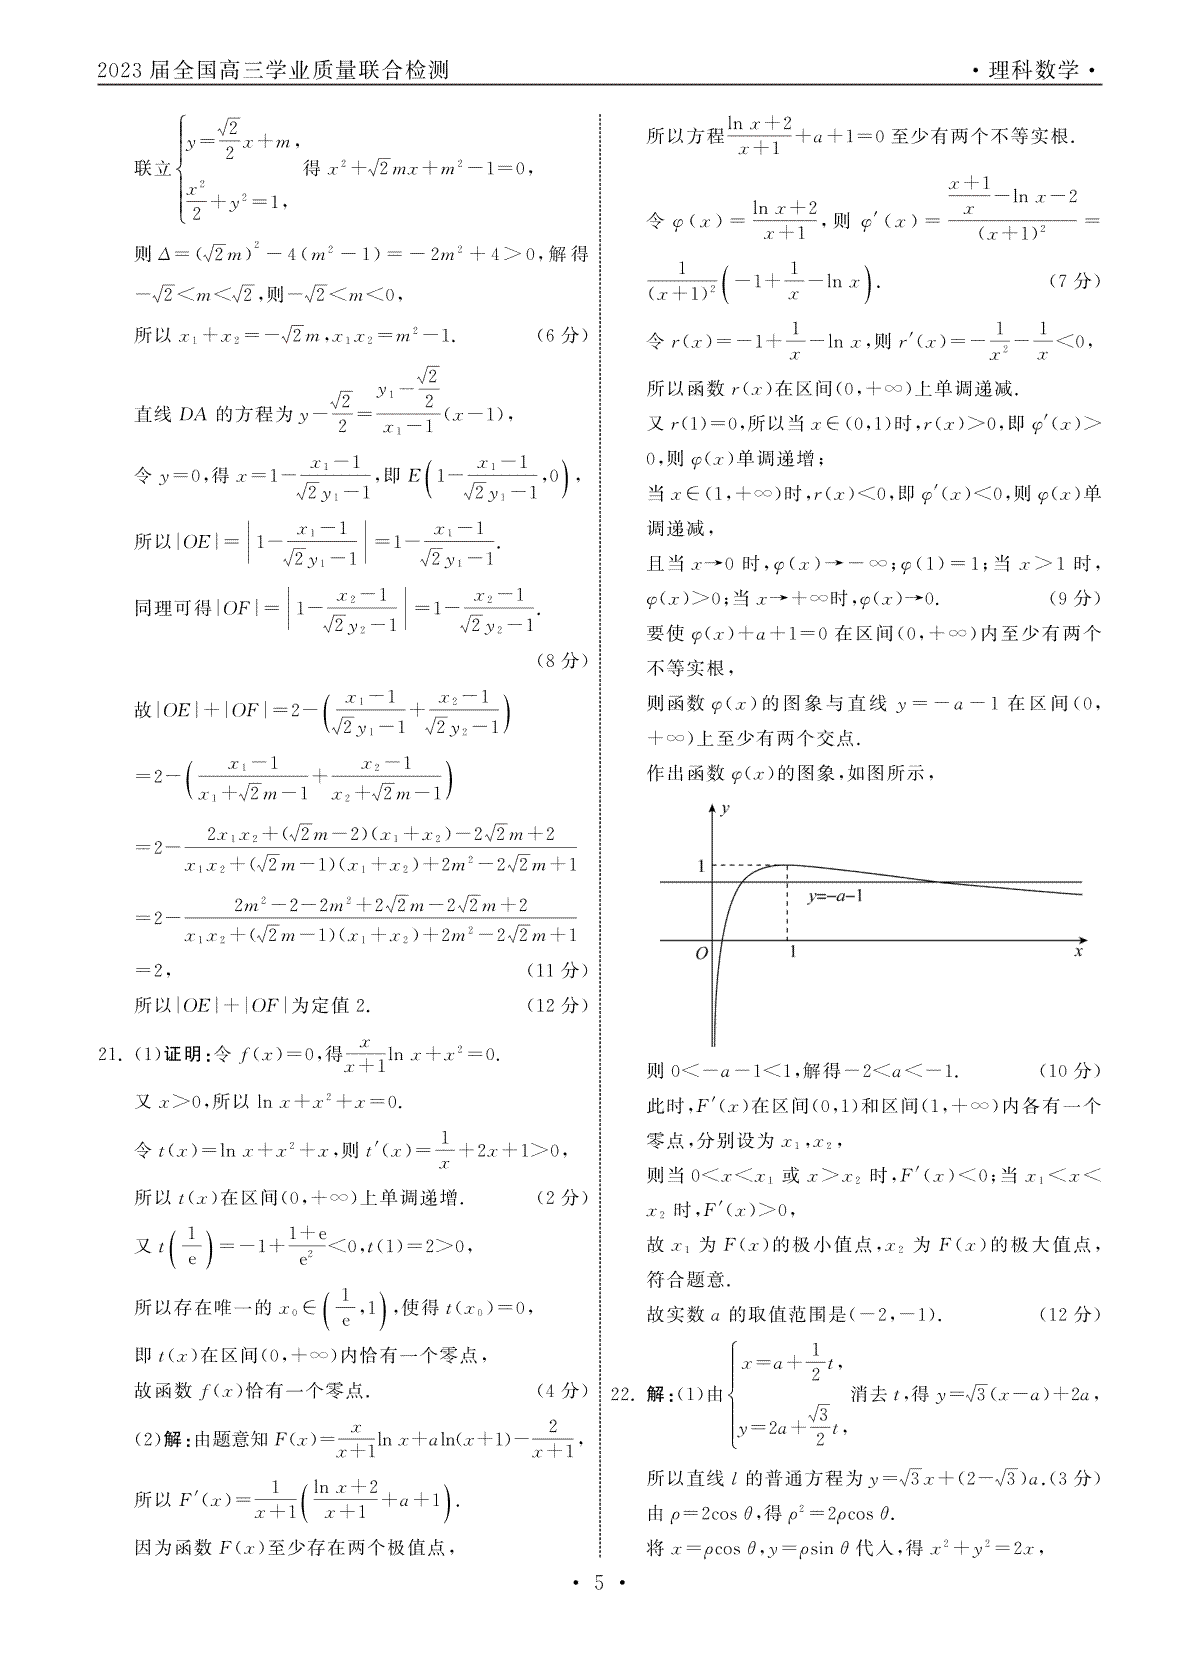 2023 届全国高三学业质量联合检测
·理科数学·
联立{y=√2/2 x+m, x²/2+y²=1, 得 x²+√2mx+m²-1=0,
则 Δ=(√2m)²-4(m²-1)=-2m²+4>0,解得
-√2<m<√2,则-√2<m<0,
所以 x₁+x₂=-√2m,x₁x₂=m²-1. (6 分)
直线 DA 的方程为 y-√2/2=(y₁-√2/2)/(x₁-1)(x-1),
令 y=0,得 x=1-(x₁-1)/(√2y₁-1),即 E(1-(x₁-1)/(√2y₁-1),0),
所以|OE|=|1-(x₁-1)/(√2y₁-1)|=1-(x₁-1)/(√2y₁-1).
同理可得|OF|=|1-(x₂-1)/(√2y₂-1)|=1-(x₂-1)/(√2y₂-1).
(8 分)
故|OE|+|OF|=2-((x₁-1)/(√2y₁-1)+(x₂-1)/(√2y₂-1))
=2-((x₁-1)/(x₁+√2m-1)+(x₂-1)/(x₂+√2m-1))
=2-(2x₁x₂+(√2m-2)(x₁+x₂)-2√2m+2)/(x₁x₂+(√2m-1)(x₁+x₂)+2m²-2√2m+1)
=2-(2m²-2-2m²+2√2m-2√2m+2)/(x₁x₂+(√2m-1)(x₁+x₂)+2m²-2√2m+1)
=2, (11 分)
所以|OE|+|OF|为定值 2. (12 分)
21. (1)证明:令 f(x)=0,得 x/(x+1) ln x+x²=0.
又 x>0,所以 ln x+x²+x=0.
令 t(x)=ln x+x²+x,则 t′(x)=1/x+2x+1>0,
所以 t(x)在区间(0,+∞)上单调递增. (2 分)
又 t(1/e)=-1+(1+e)/e²<0,t(1)=2>0,
所以存在唯一的 x₀∈(1/e,1),使得 t(x₀)=0,
即 t(x)在区间(0,+∞)内恰有一个零点,
故函数 f(x)恰有一个零点. (4 分)
(2)解:由题意知 F(x)=x/(x+1) ln x+aln(x+1)-2/(x+1),
所以 F′(x)=1/(x+1)((ln x+2)/(x+1)+a+1).
因为函数 F(x)至少存在两个极值点,
所以方程(ln x+2)/(x+1)+a+1=0 至少有两个不等实根.
令 φ(x)=(ln x+2)/(x+1),则 φ′(x)=((x+1)/x-ln x-2)/(x+1)²=
1/(x+1)²(-1+1/x-ln x). (7 分)
令 r(x)=-1+1/x-ln x,则 r′(x)=-1/x²-1/x<0,
所以函数 r(x)在区间(0,+∞)上单调递减.
又 r(1)=0,所以当 x∈(0,1)时,r(x)>0,即 φ′(x)>
0,则 φ(x)单调递增;
当 x∈(1,+∞)时,r(x)<0,即 φ′(x)<0,则 φ(x)单
调递减,
且当 x→0 时,φ(x)→-∞;φ(1)=1;当 x>1 时,
φ(x)>0;当 x→+∞时,φ(x)→0. (9 分)
要使 φ(x)+a+1=0 在区间(0,+∞)内至少有两个
不等实根,
则函数 φ(x)的图象与直线 y=-a-1 在区间(0,
+∞)上至少有两个交点.
作出函数 φ(x)的图象,如图所示,
y
1
y=-a-1
O 1 x
则 0<-a-1<1,解得-2<a<-1. (10 分)
此时,F′(x)在区间(0,1)和区间(1,+∞)内各有一个
零点,分别设为 x₁,x₂,
则当 0<x<x₁ 或 x>x₂ 时,F′(x)<0;当 x₁<x<
x₂ 时,F′(x)>0,
故 x₁ 为 F(x)的极小值点,x₂ 为 F(x)的极大值点,
符合题意.
故实数 a 的取值范围是(-2,-1). (12 分)
22. 解:(1)由{x=a+1/2 t, y=2a+√3/2 t, 消去 t,得 y=√3(x-a)+2a,
所以直线 l 的普通方程为 y=√3x+(2-√3)a.(3 分)
由 ρ=2cos θ,得 ρ²=2ρcos θ.
将 x=ρcos θ,y=ρsin θ 代入,得 x²+y²=2x,
· 5 ·